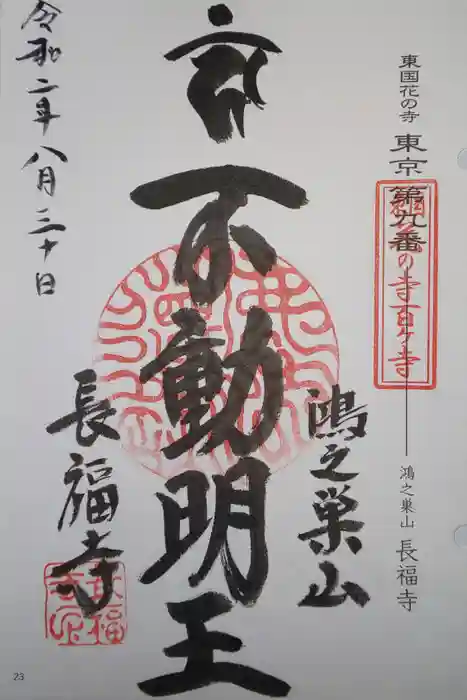 東国花の寺 東京 第九番
の寺百ヶ寺
鴻之巣山 長福寺
鴻之巣山
不動明王
長福寺
令和二年八月三十日
23